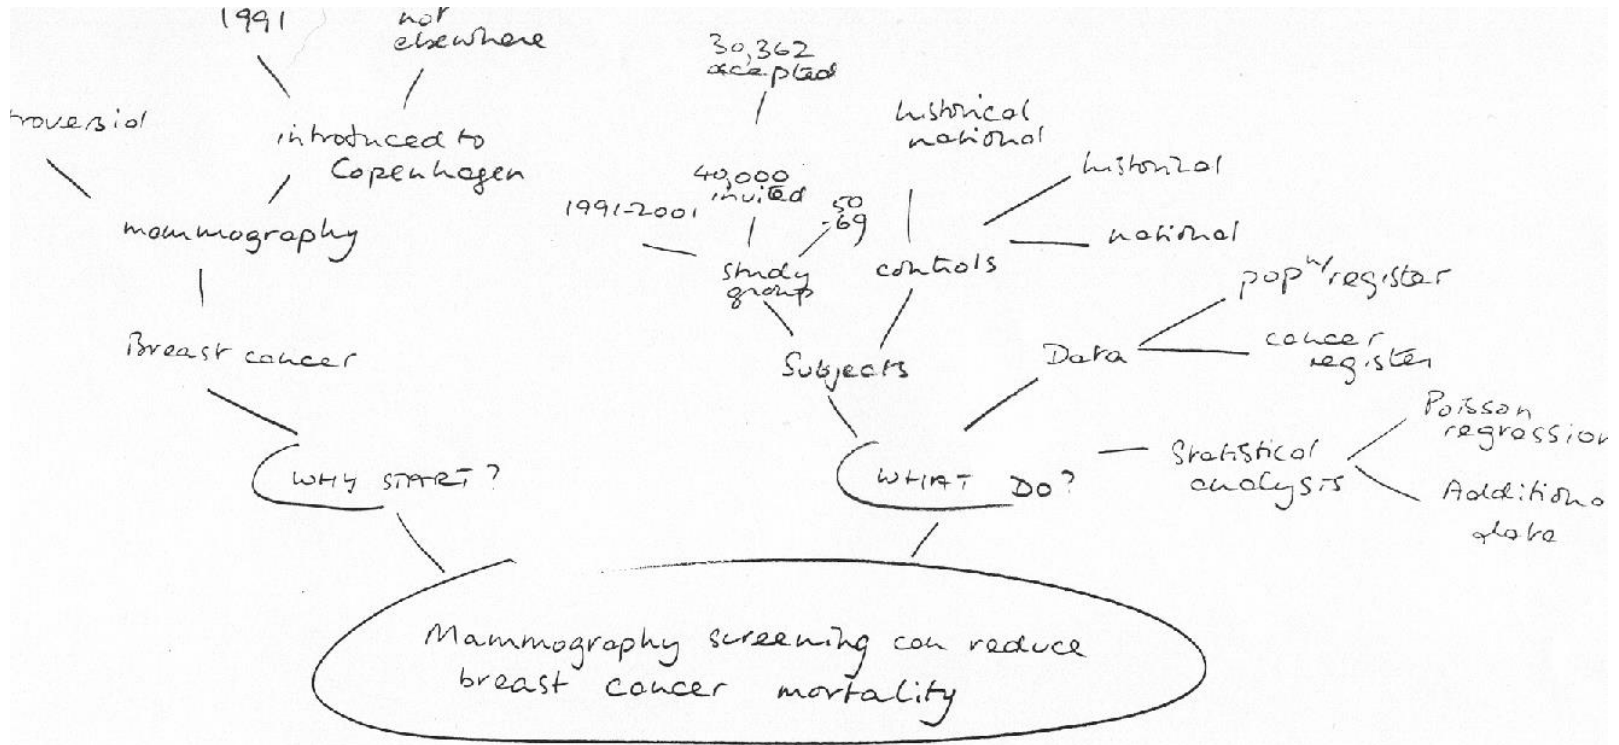 1991
not
elsewhere
troversial
introduced to
Copenhagen
mammography
Breast cancer
WHY START?
30,362
accepted
40,000
invited
1991-2001
50
-69
study
group
historical
national
historical
national
controls
Subjects
Data
popⁿ/register
cancer
register
WHAT DO?
Statistical
analysis
Poisson
regression
Additiona
data
Mammography screening can reduce
breast cancer mortality